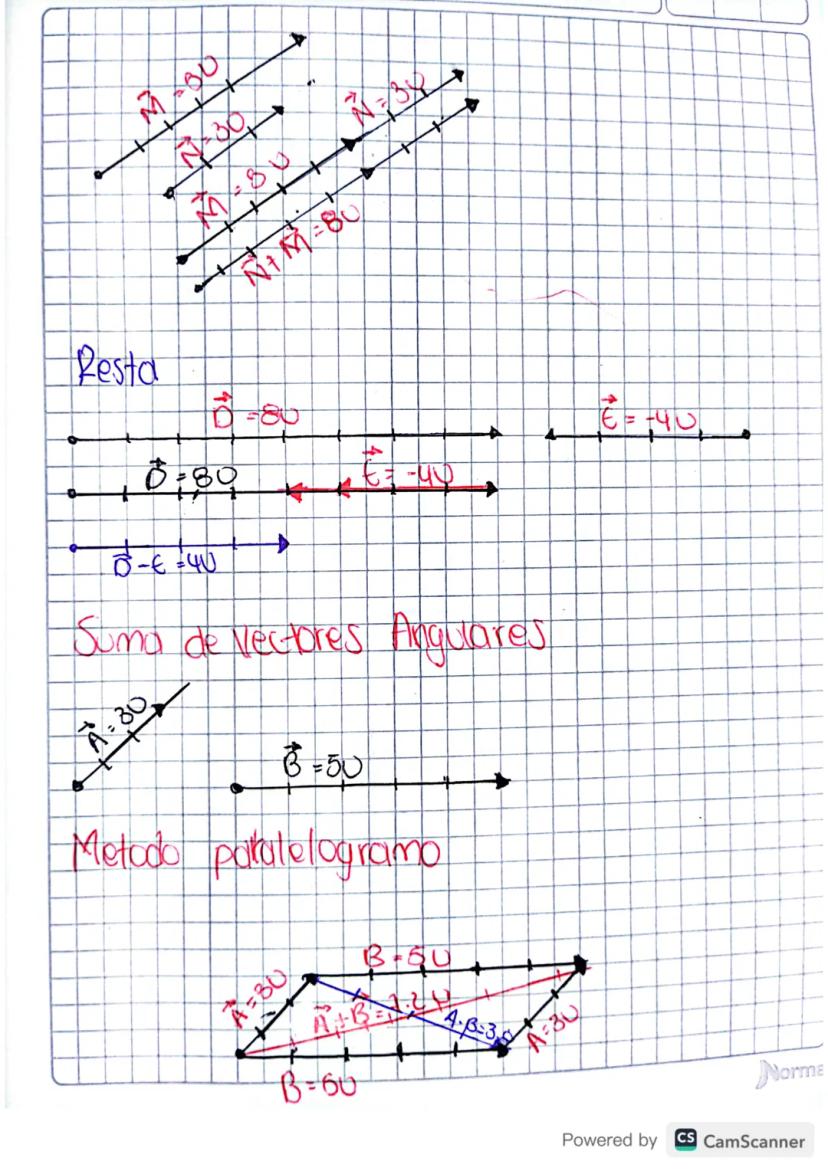 M = 8U
N = 3U
N = 3U
M = 8U
N + M = 8U
Resta
D = 8U
E = -4U
D = 8U
E = -4U
D - E = 4U
Suma de vectores Angulares
A = 3U
B = 5U
Metodo paralelogramo
B = 5U
A = 3U
A + B = 7.2U
A - B = 3,
A = 3U
B = 5U
Norma
Powered by CS CamScanner